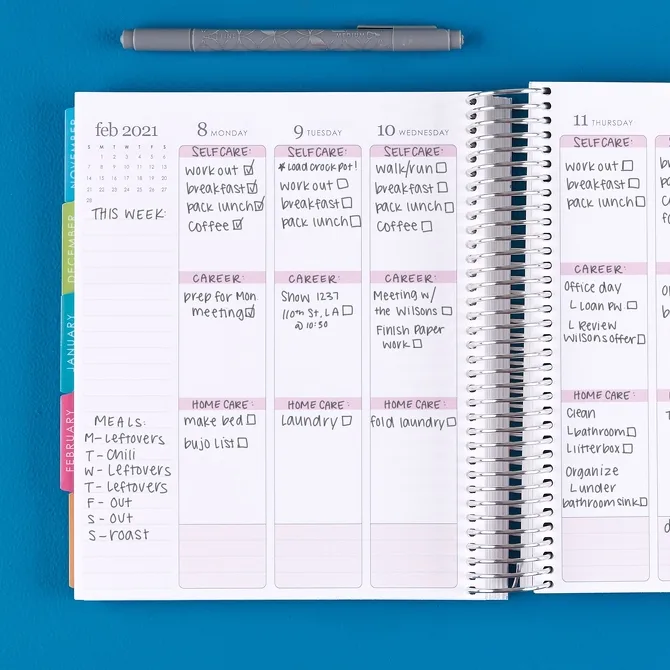 feb 2021
S M T W T F S
1 2 3 4 5 6
7 8 9 10 11 12 13
14 15 16 17 18 19 20
21 22 23 24 25 26 27
28
THIS WEEK:
MEALS:
M- Leftovers
T- Chili
W- Leftovers
T- Leftovers
F- out
S- out
S- roast
8 MONDAY
SELFCARE:
work out
breakfast
pack lunch
Coffee
CAREER:
prep for Mon
meeting
HOME CARE:
make bed
bujo List
9 TUESDAY
SELFCARE:
*Load crock pot!
work out
breakfast
pack lunch
CAREER:
Show 1237
110th St, LA
@ 10:30
HOME CARE:
Laundry
10 WEDNESDAY
SELFCARE:
walk/run
breakfast
pack lunch
Coffee
CAREER:
Meeting w/
the Wilsons
Finish Paper
work
HOME CARE:
fold laundry
11 THURSDAY
SELFCARE:
work out
breakfast
pack lunch
CAREER:
Office day
L Loan PW
L Review
Wilsons offer
HOME CARE:
Clean
L bathroom
L litterbox
Organize
L under
bathroom sink
NOVEMBER
DECEMBER
JANUARY
FEBRUARY